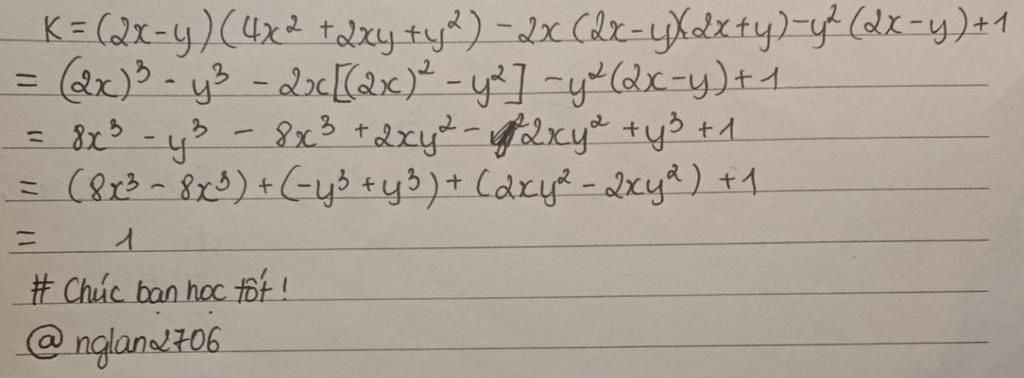 K = (2x-y)(4x² +2xy+y²) - 2x(2x-y)(2x+y)-y²(2x-y)+1
= (2x)³ - y³ - 2x[(2x)² - y²] -y²(2x-y)+1
= 8x³ - y³ - 8x³ +2xy² - 2xy² +y³ +1
= (8x³ - 8x³)+(-y³ +y³)+(2xy² - 2xy²) +1
= 1
# Chúc bạn học tốt!
@nglan2706